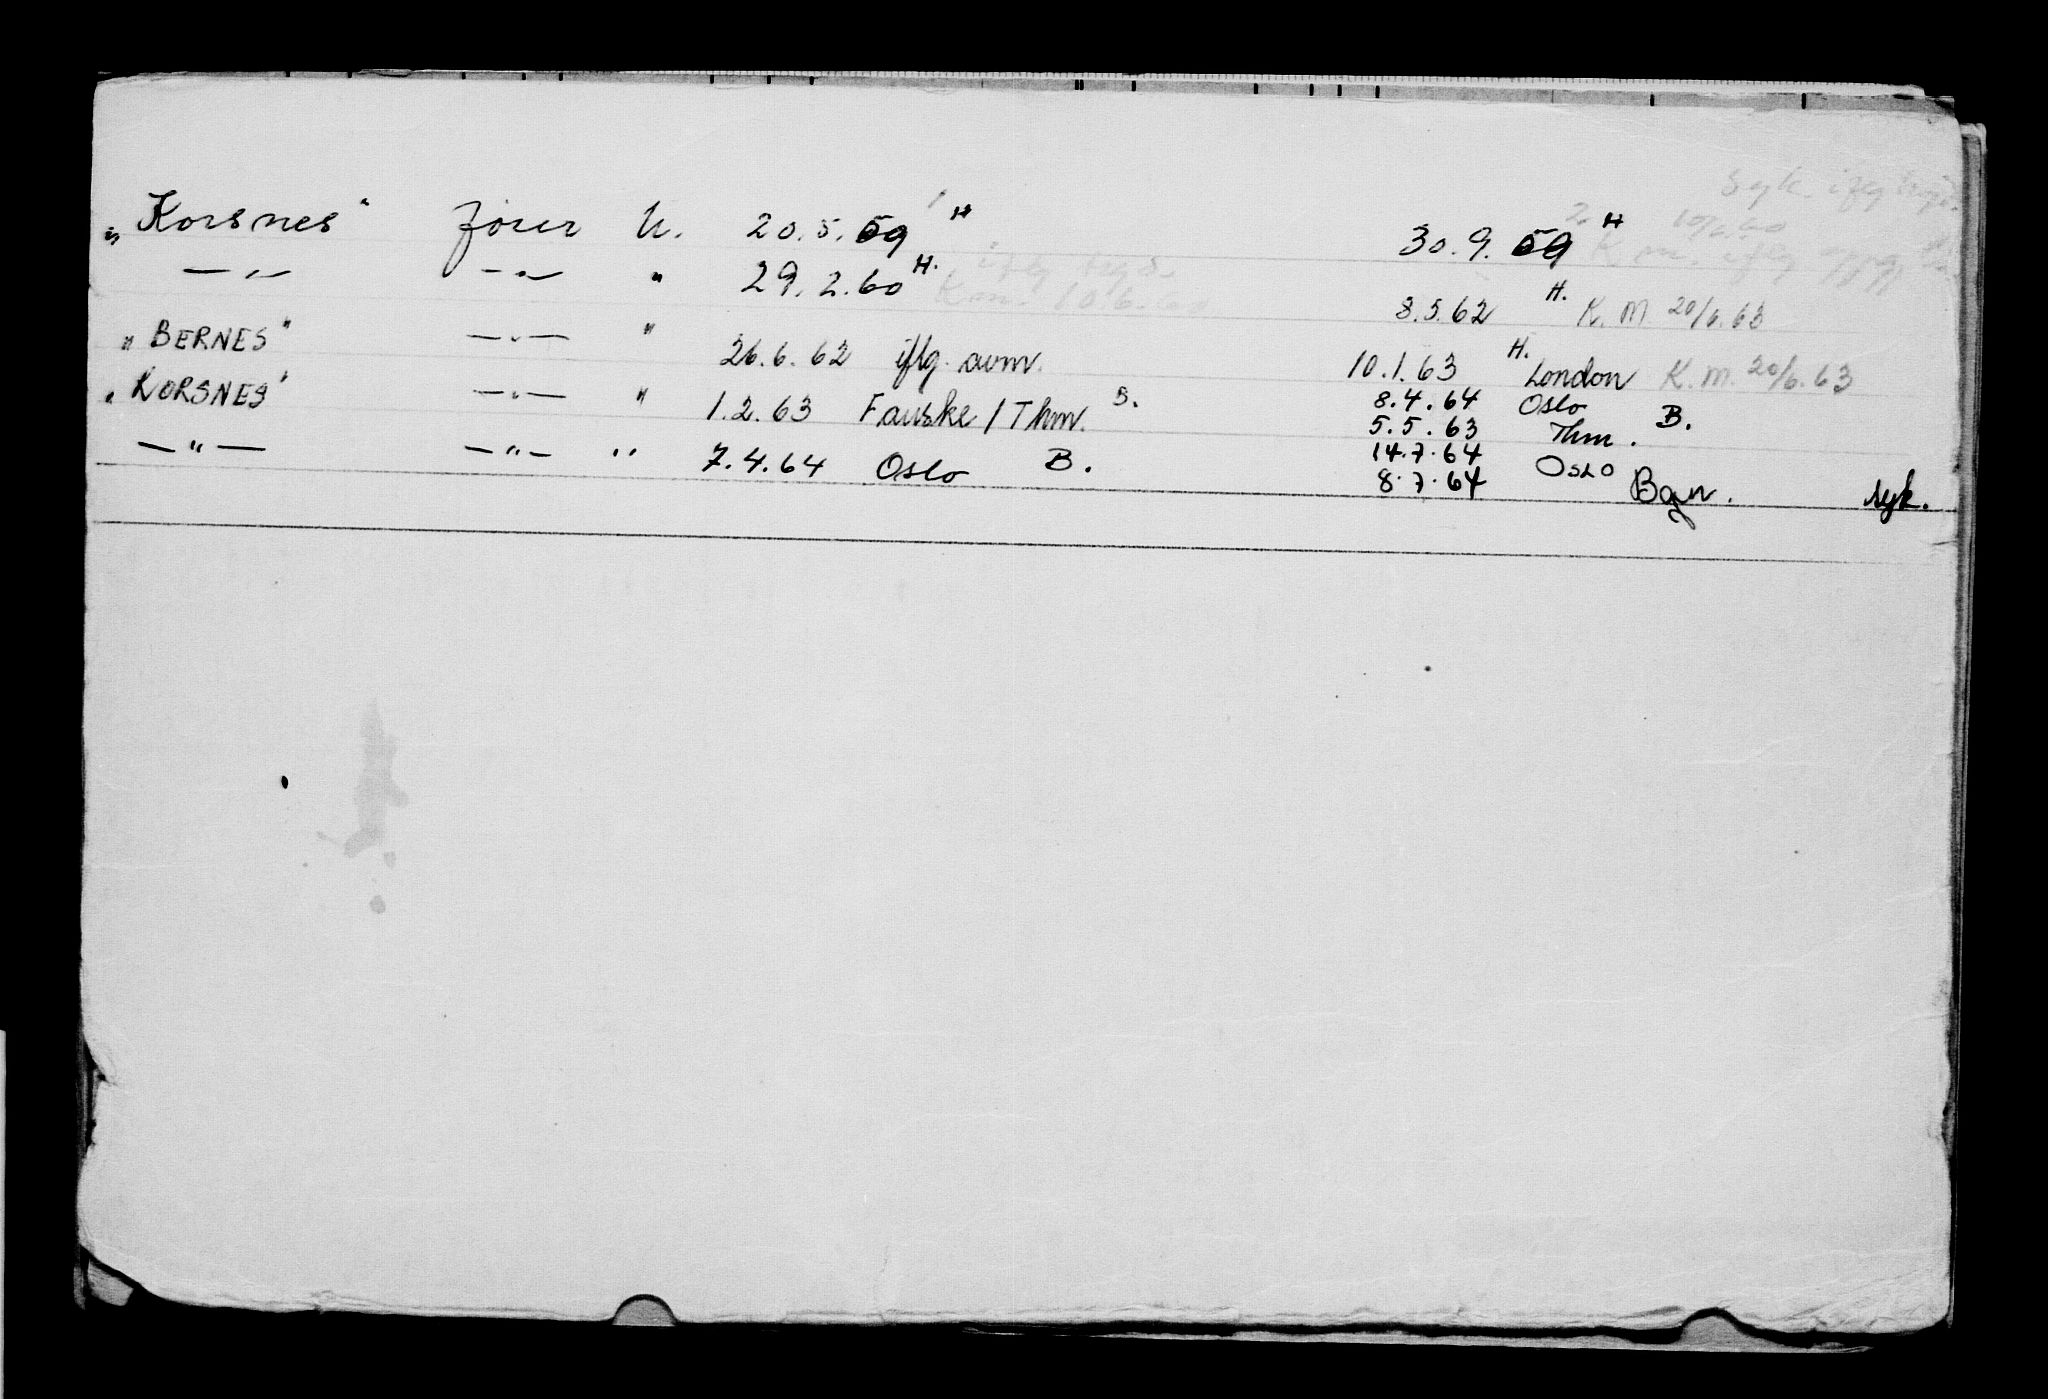 syk. iflg
"Korsnes" fører U. 20.5.59 H 30.9.59 H 10/6.60
—"— —"— " 29.2.60 H. iflg K.m. 10.6.60 K.m. iflg
8.5.62 H. K.M 20/6.63
"BERNES" —"— " 26.6.62 iflg. avm. 10.1.63 H. London K.M. 20/6.63
"KORSNES" —"— " 1.2.63 Fauske / Thm. B. 8.4.64 Oslo B.
5.5.63 Thm.
—"— —"— " 7.4.64 Oslo B. 14.7.64 Oslo
8.7.64 Bgn. syk.